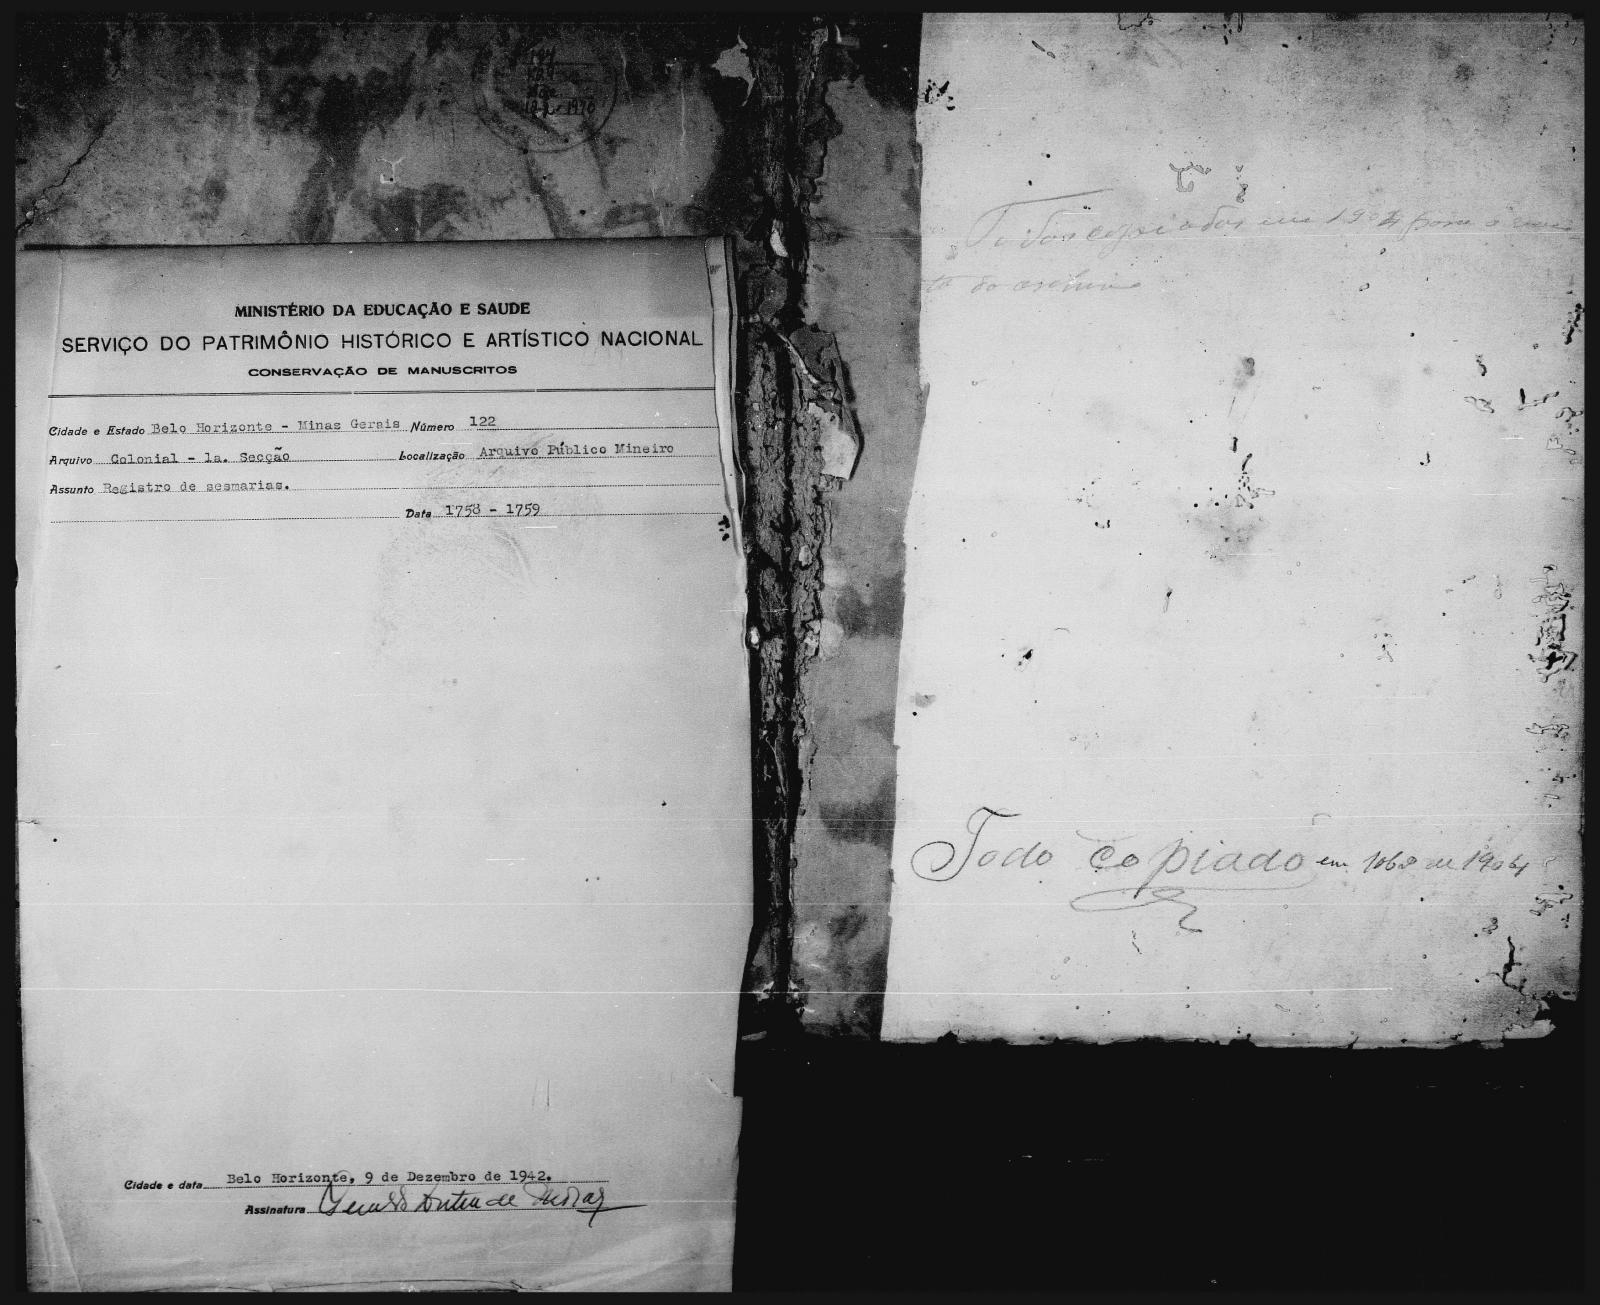 MINISTÉRIO DA EDUCAÇÃO E SAUDE
SERVIÇO DO PATRIMÔNIO HISTÓRICO E ARTÍSTICO NACIONAL
CONSERVAÇÃO DE MANUSCRITOS
Cidade e Estado Belo Horizonte - Minas Gerais Número 122
Arquivo Colonial - 1a. Secção Localização Arquivo Público Mineiro
Assunto Registro de sesmarias.
Data 1758 - 1759
Cidade e data Belo Horizonte, 9 de Dezembro de 1942.
Assinatura
Todos copiados em 1904 para a
do archivo
Todo copiado em 10b8 de 1904